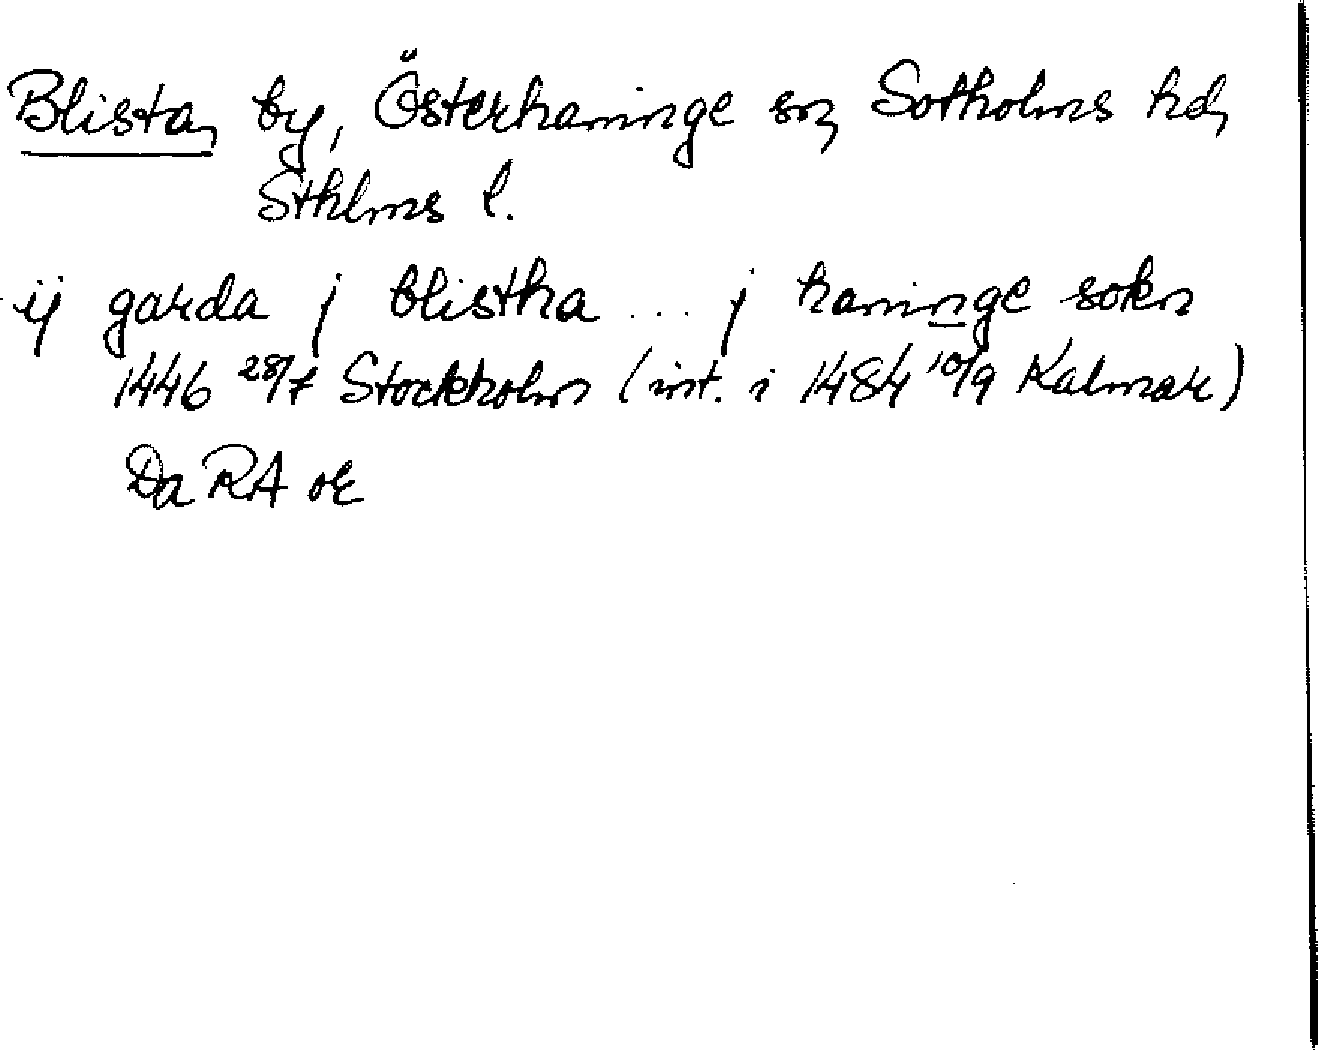 Blista, by, Österhaninge sn, Sotholms hd,
Sthlms l.
ij garda j blistha ... j haninge sokn
1446 28/7 Stockholm (int. i 1484 10/9 Kalmar)
Da RA or